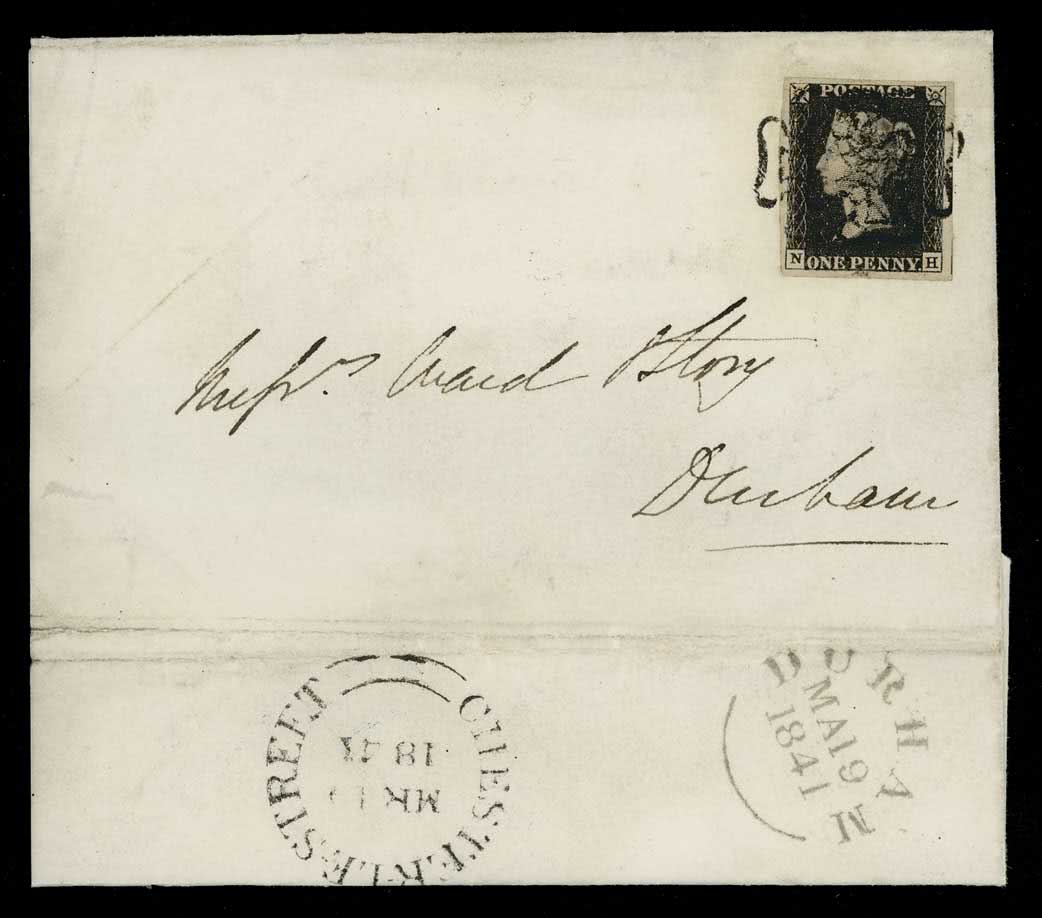 POSTAGE
N ONE PENNY. H
Messrs. Ward & Story
Durham
CHESTER-LE-STREET
MR 19
1841
DURHAM
MA 19
1841